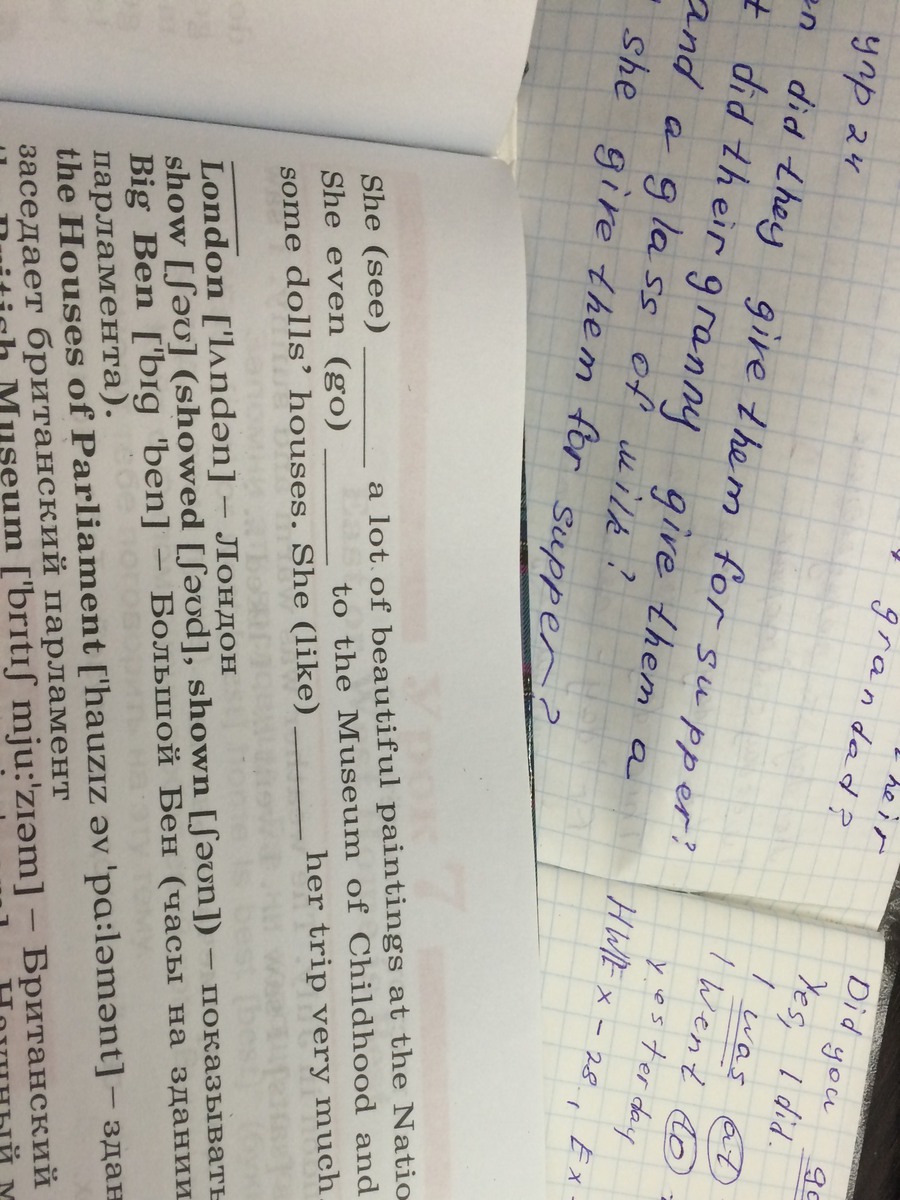 упр 24
did they give them for supper?
did their granny give them a
and a glass of milk?
she give them for supper?
their
grandad?
Did you
Yes, I did.
I was at
I went to
yesterday
HW Ex - 28, Ex -
She (see) ______ a lot of beautiful paintings at the
She even (go) ______ to the Museum of Childhood and
some dolls’ houses. She (like) ______ her trip very much.
London [ˈlʌndən] – Лондон
show [ʃəʊ] (showed [ʃəʊd], shown [ʃəʊn]) – показывать
Big Ben [ˈbɪɡ ˈben] – Большой Бен (часы на здании
парламента).
the Houses of Parliament [ˈhauzɪz əv ˈpɑːləmənt] –
заседает британский парламент
British Museum [ˈbrɪtɪʃ mjuːˈzɪəm] – Британский